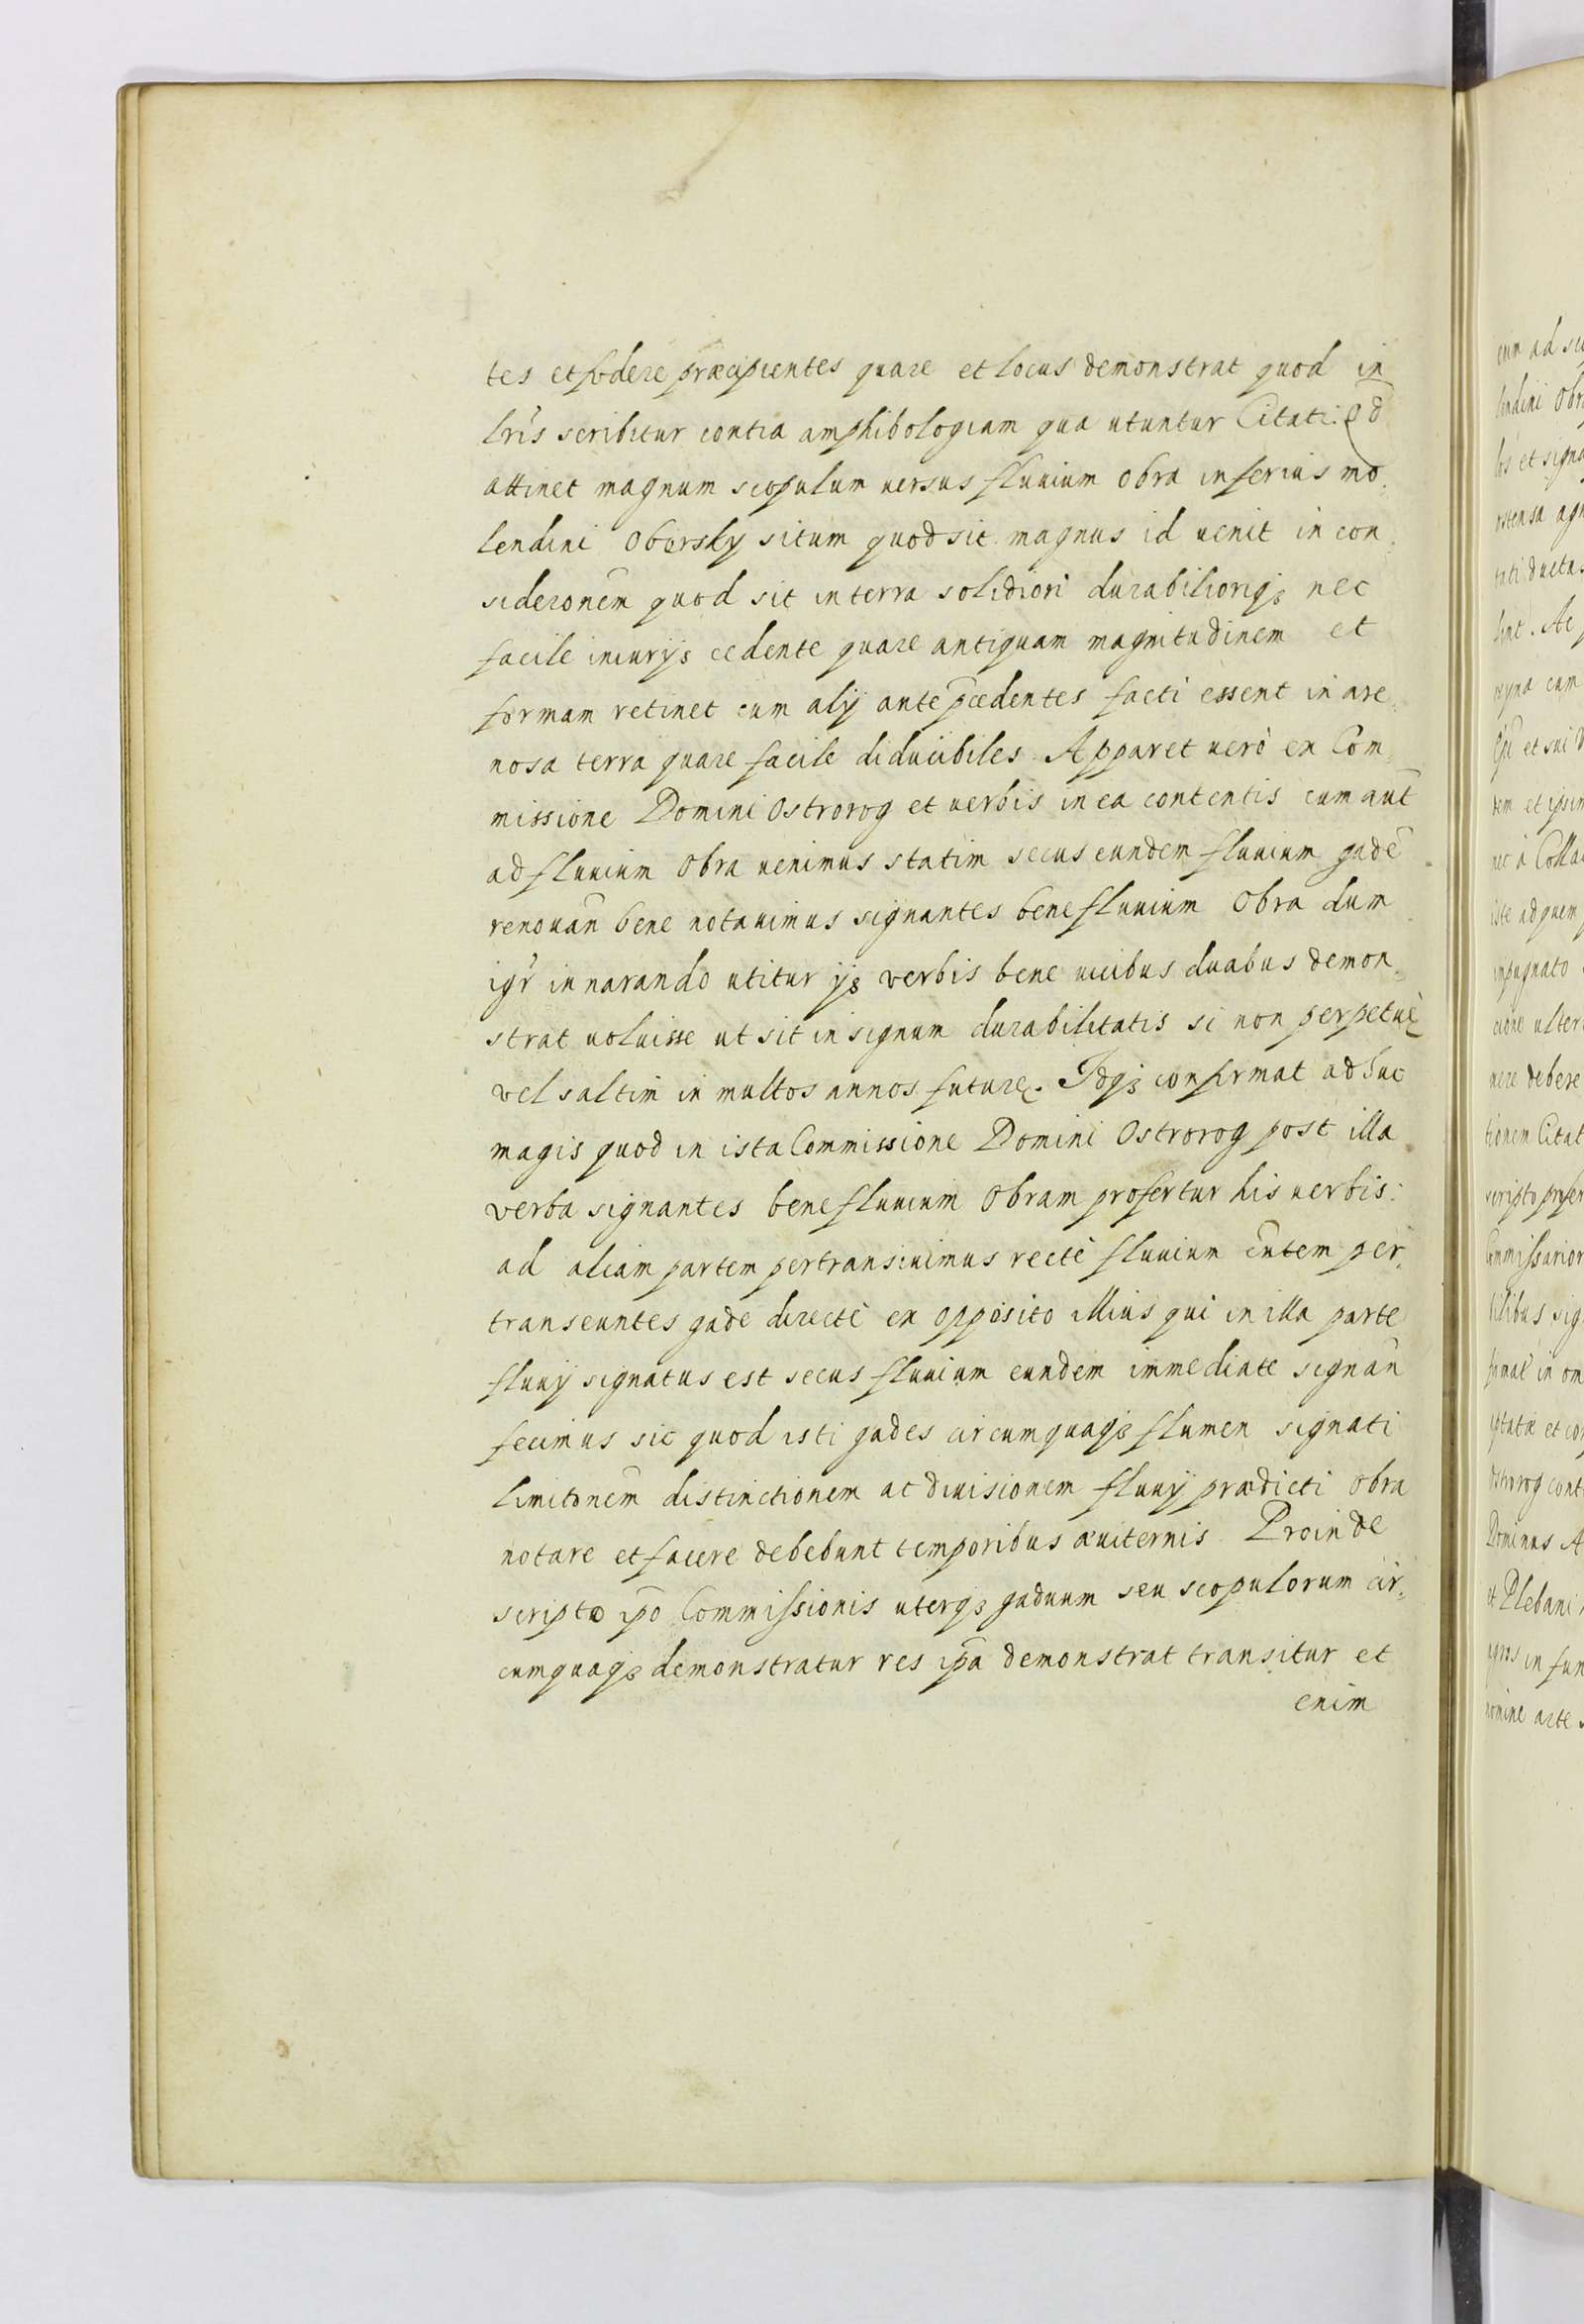 tes et fodere præcipientes quare et locus demonstrat quod in
lr̃is scribitur contra amphibologiam qua utuntur Citati. Qd̃
attinet magnum scopulum uersus fluuium Obra inferius mo,
lendini Obersky situm quod sit magnus id uenit in con,
siderõnem quod sit in terra solidiori durabilioriq3 nec
facile iniurijs cedente quare antiquam magnitudinem et
formam retinet cum alij antep̃cedentes facti essent in are,
nosa terra quare facile diducibiles. Apparet uerò ex Com,
missione Domini Ostrorog et uerbis in ea contentis cum aut̃
ad fluuium Obra uenimus statim secus eundem fluuium gadẽ
renouañ bene notauimus signantes bene fluuium Obra dum
igr̃ in narando utitur ijs verbis bene uicibus duabus demon,
strat uoluisse ut sit in signum durabilitatis si non perpetuę
vel saltim in multos annos futurę. Idq3 confirmat adhuc
magis quod in ista Commissione Domini Ostrorog post illa
verba signantes bene fluuium Obram profertur his uerbis:
ad aliam partem pertransiuimus rectè fluuium eũtem per,
transeuntes gade directè ex opposito illius qui in illa parte
fluuij signatus est secus fluuium eundem immediate signañ
fecimus sic quod isti gades circumquaq3 flumen signati
limitõnem distinctionem ac diuisionem fluuij prædicti Obra
notare et facere debebunt temporibus æuiternis. Proinde
scripto ip̃o Commissionis uterq3 gaduum seu scopulorum cir,
cumquaq3 demonstratur res ip̃a demonstrat transitur et
enim